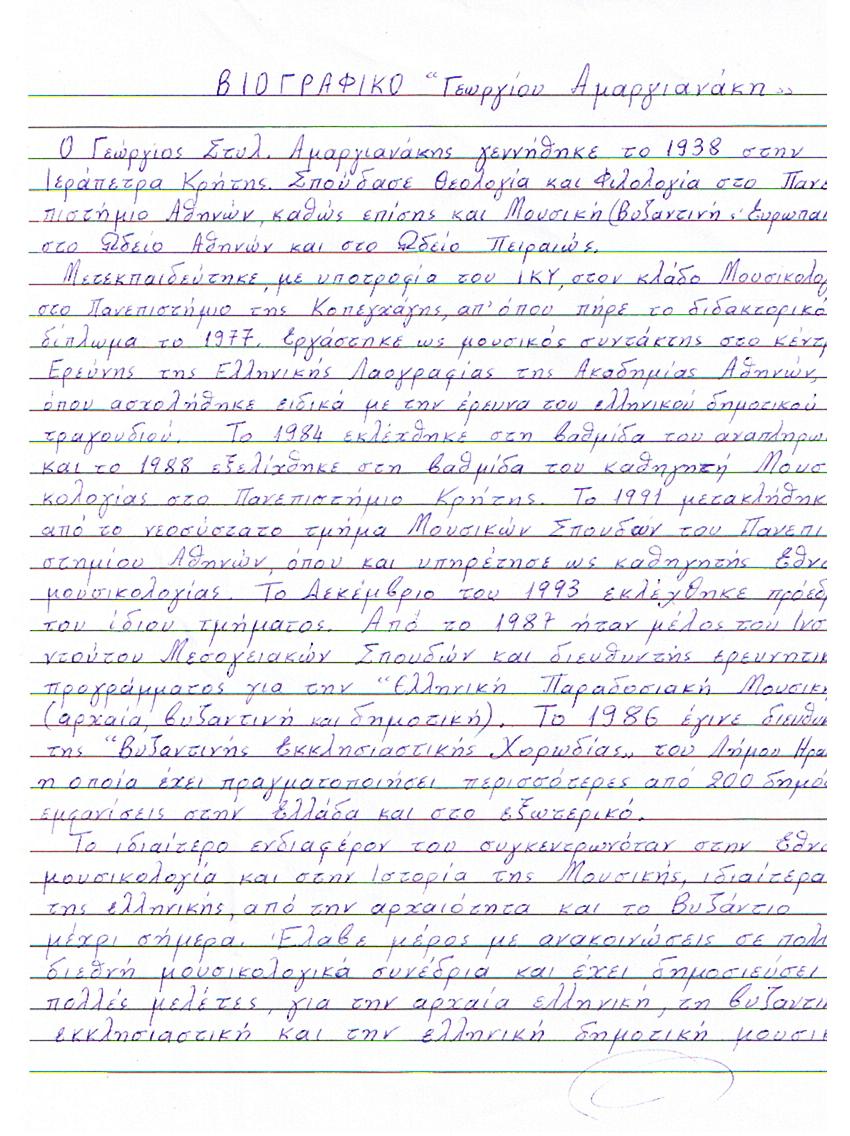 ΒΙΟΓΡΑΦΙΚΟ "Γεωργίου Αμαργιανάκη"
Ο Γεώργιος Στυλ. Αμαργιανάκης γεννήθηκε το 1938 στην
Ιεράπετρα Κρήτης. Σπούδασε Θεολογία και Φιλολογία στο Πανε
πιστήμιο Αθηνών, καθώς επίσης και Μουσική (Βυζαντινή & Ευρωπαι
στο Ωδείο Αθηνών και στο Ωδείο Πειραιώς.
Μετεκπαιδεύτηκε, με υποτροφία του ΙΚΥ, στον κλάδο Μουσικολογ
στο Πανεπιστήμιο της Κοπεγχάγης, απ' όπου πήρε το διδακτορικό
δίπλωμα το 1977. Εργάστηκε ως μουσικός συντάκτης στο κέντρ
Ερεύνης της Ελληνικής Λαογραφίας της Ακαδημίας Αθηνών,
όπου ασχολήθηκε ειδικά με την έρευνα του ελληνικού δημοτικού
τραγουδιού. Το 1984 εκλέχθηκε στη βαθμίδα του αναπληρω
και το 1988 εξελίχθηκε στη βαθμίδα του καθηγητή Μουσ
κολογίας στο Πανεπιστήμιο Κρήτης. Το 1991 μετακλήθηκ
από το νεοσύστατο τμήμα Μουσικών Σπουδών του Πανεπι
στημίου Αθηνών, όπου και υπηρέτησε ως καθηγητής Εθνο
μουσικολογίας. Το Δεκέμβριο του 1993 εκλέχθηκε πρόεδ
του ίδιου τμήματος. Από το 1987 ήταν μέλος του Ινστ
ντούτου Μεσογειακών Σπουδών και διευθυντής ερευνητικ
προγράμματος για την "Ελληνική Παραδοσιακή Μουσικ
(αρχαία, βυζαντινή και δημοτική). Το 1986 έγινε διευθυν
της "Βυζαντινής Εκκλησιαστικής Χορωδίας" του Δήμου Ηρα
η οποία έχει πραγματοποιήσει περισσότερες από 200 δημό
εμφανίσεις στην Ελλάδα και στο εξωτερικό.
Το ιδιαίτερο ενδιαφέρον του συγκεντρωνόταν στην Εθνο
μουσικολογία και στην Ιστορία της Μουσικής, ιδιαίτερα
της ελληνικής, από την αρχαιότητα και το Βυζάντιο
μέχρι σήμερα. Έλαβε μέρος με ανακοινώσεις σε πολλ
διεθνή μουσικολογικά συνέδρια και έχει δημοσιεύσει
πολλές μελέτες, για την αρχαία ελληνική, τη βυζαντι
εκκλησιαστική και την ελληνική δημοτική μουσικ